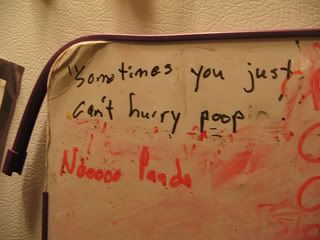 "Sometimes you just
can't hurry poop."
Nooooo Panda